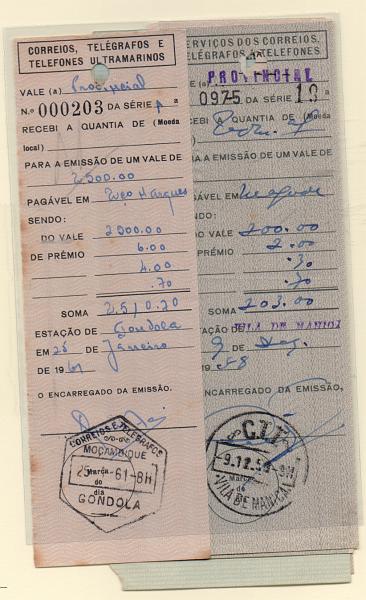 CORREIOS, TELÉGRAFOS E
TELEFONES ULTRAMARINOS
VALE (a) Provincial
N.º 000203 DA SÉRIE A a
RECEBI A QUANTIA DE (Moeda
local)
PARA A EMISSÃO DE UM VALE DE
2,500.00
PAGÁVEL EM Lço Marques
SENDO:
DO VALE 2500.00
DE PRÉMIO 6.00
4.00
.70
SOMA 2510.70
ESTAÇÃO DE Gondola
EM 25 DE Janeiro
DE 1961
O ENCARREGADO DA EMISSÃO,
CORREIOS E TELÉGRAFOS
MOÇAMBIQUE
25 -61-8H
Marca do dia
GONDOLA
SERVIÇOS DOS CORREIOS,
TELÉGRAFOS E TELEFONES
PROVINCIAL
0975 DA SÉRIE 19
RECEBI A QUANTIA DE (Moeda
PARA A EMISSÃO DE UM VALE DE
PAGÁVEL EM
DO VALE 200.00
PRÉMIO 2.00
.30
.70
SOMA 203.00
ESTAÇÃO DE VILA DE MANICA
9 DE Dez.
1958
ENCARREGADO DA EMISSÃO,
C.T.T.
-9.12.58
Marca do
VILA DE MANICA